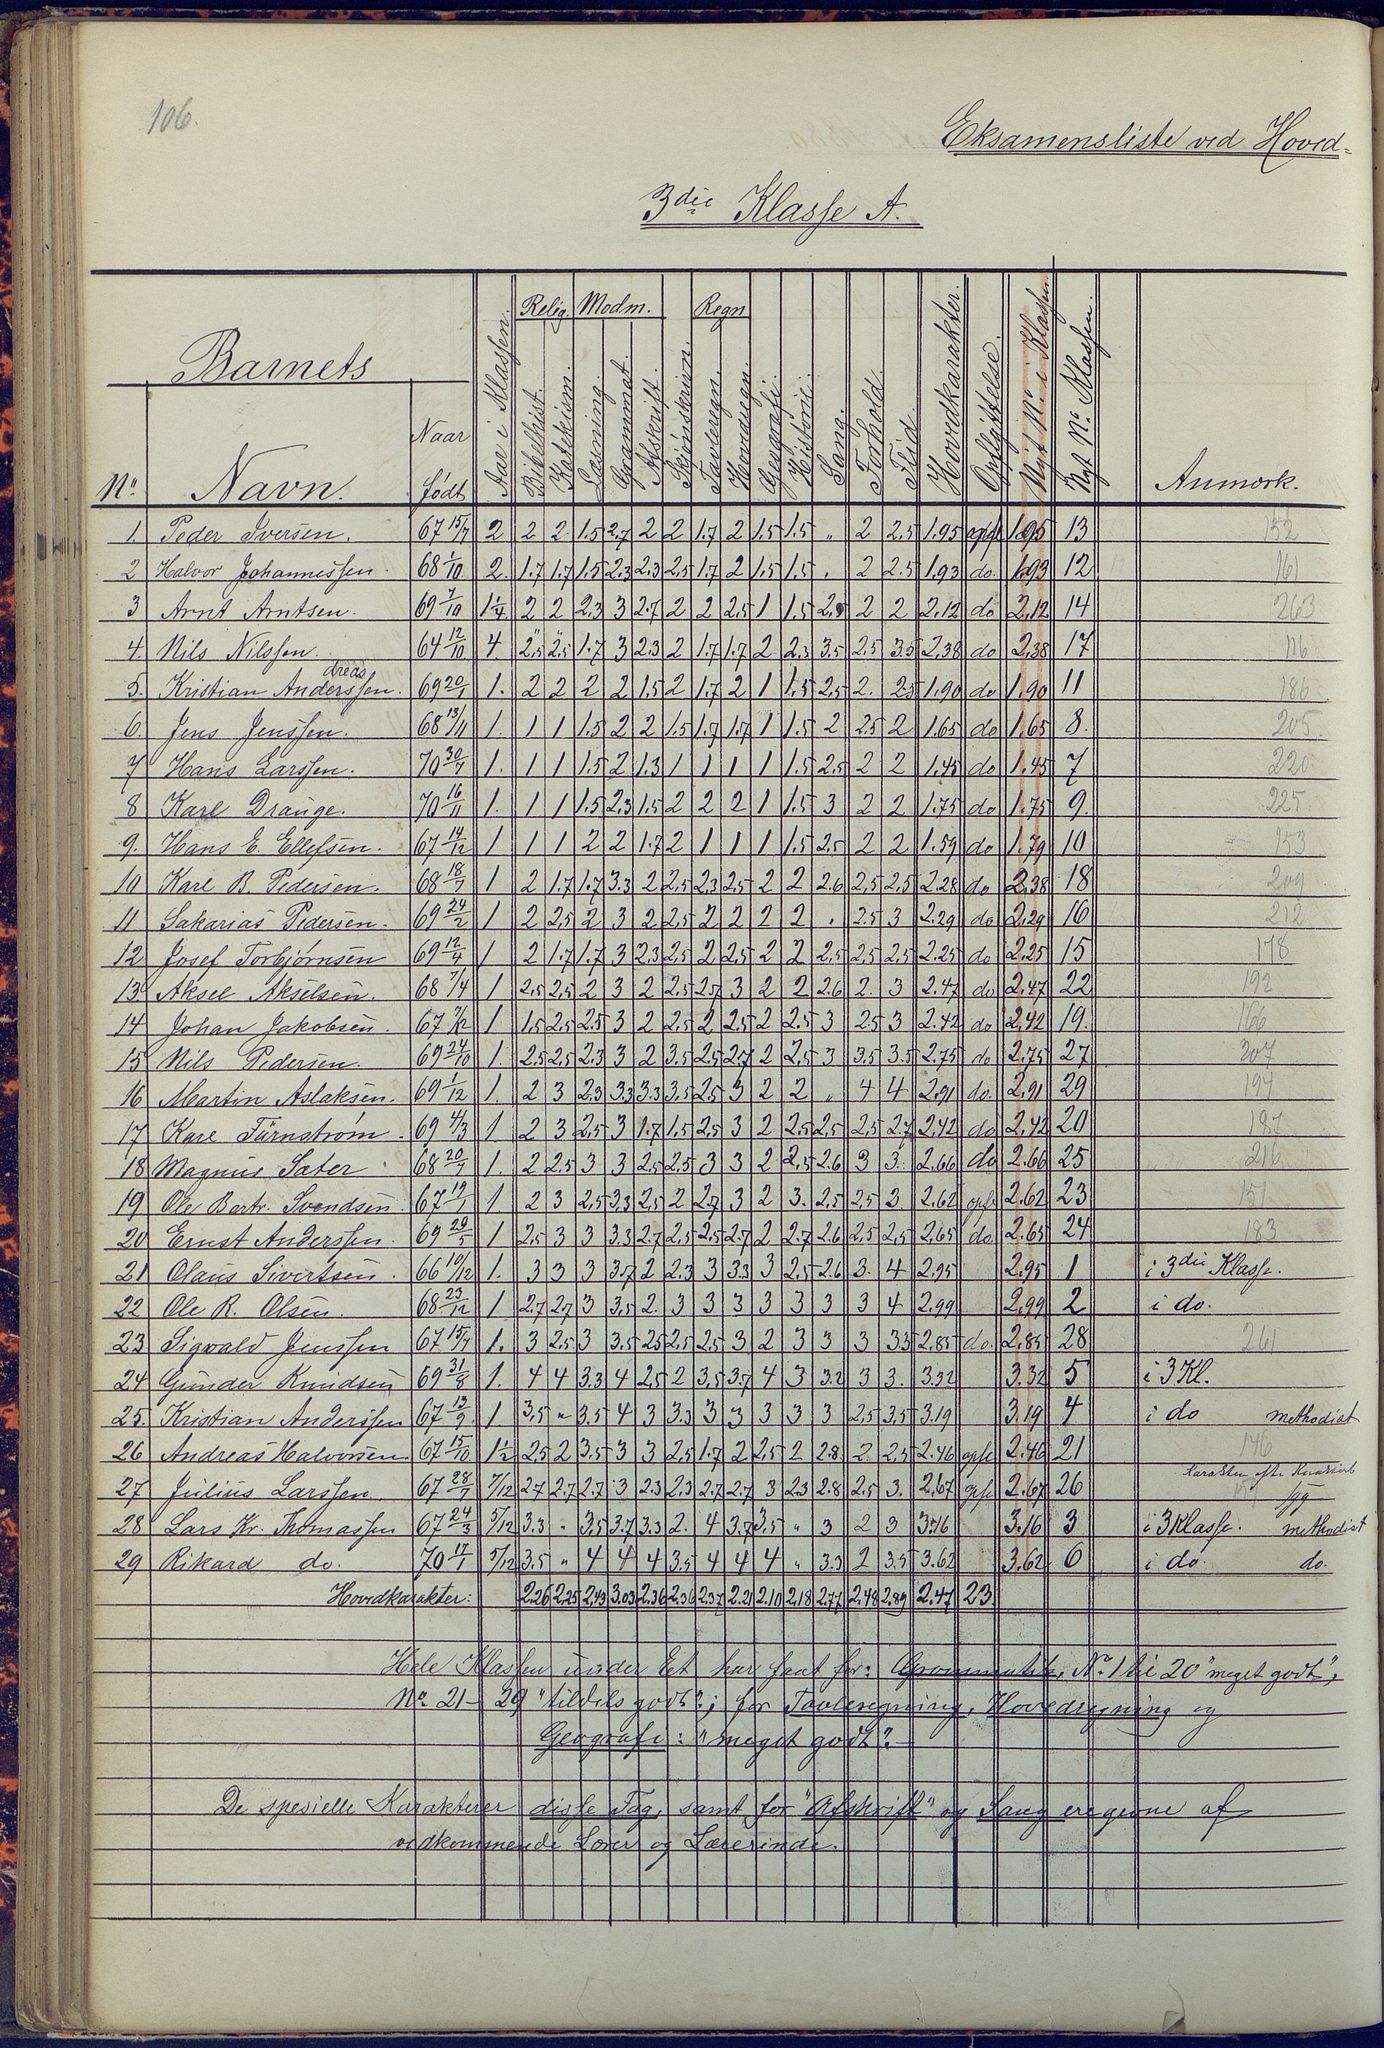 106.
Eksamensliste ved Hoved=
3die Klasse A.
Barnets
Nº. Navn. Naar født Aar i Klassen. Relig. Bibelhist. Katekism. Modm. Læsning. Grammat. Afskrift. Skjønskrivn. Regn Tavleregn. Hovedregn. Geografi. Historie. Sang. Forhold. Flid. Hovedkarakter. Opflyttelse. Nyt Nº i Klassen. Nyt Nº Klassen. Anmærk.
1. Peder Iversen. 67 15/7 2 2 2 1.5 2.7 2 2 1.7 2 1.5 1.5 " 2 2.5 1.95 opfl 1.95 13 152
2 Halvor Johannessen. 68 1/10 2. 1.7 1.7 1.5 2.3 2.3 2.5 1.7 2 1.5 1.5 . 2 2.5 1.93 do. 1.93 12 161
3 Arnt Arntsen. 69 7/10 1 1/4 2 2 2.3 3 2.7 2 2 2.5 1 1.5 2.5 2 2 2.12 do 2.12 14 263
4. Nils Nilssen. 64 12/10 4. 2.5 2.5 1.7 3 2.3 2 1.7 1.7 2 2.3 3.5 2.5 3.5 2.38 do 2.38 17 116
dreas
5. Kristian Anderssen. 69 20/1 1. 2 2 2 2 1.5 2 1.7 2 1 1.5 2.5 2. 2.5 1.90 do 1.90 11 186
6. Jens Jenssen. 68 13/11 1. 1 1 1.5 2 2 1.5 1.7 1.7 1 1.5 2 2.5 2 1.65 do 1.65 8. 205.
7 Hans Larssen. 70 30/7 1. 1 1 1.5 2 1.3 1 1 1 1 1.5 2.5 2 2 1.45 do 1.45 7 220
8 Karl Drange. 70 16/11 1. 1 1 1.5 2.3 1.5 2 2 2 1 1.5 3 2 2 1.75 do 1.75 9. 225
9. Hans E. Ellefsen. 67 14/12 1 1 1 2 2 1.7 2 1 1 1 1.5 2.5 2 2 1.59 do 1.79 10 153
10 Karl B. Pedersen. 68 18/7 1 2 1.7 1.7 3.3 2 2.5 2.3 2.5 2 2 2.6 2.5 2.5 2.28 do 2.38 18 209
11 Sakarias Pedersen. 69 24/2 1 2 2.5 2 3 2 2.5 2 2 2 2 . 2.5 3 2.29 do 2.29 16 212
12 Josef Torbjørnsen 69 12/4 1 2 1.7 1.7 3 2.3 2.5 2 2.5 2 2 2.5 2.5 2.5 2.25 do 2.25 15 178
13. Aksel Akselsen. 68 7/4 1 2.5 2.5 2 3 2 2.5 2.7 3 2 2 2.6 2. 3 2.47 do 2.47 22 192
14 Johan Jakobsen. 67 7/12 1 1.5 2.5 2.5 3 2 2.5 2 2.5 2 2.5 3 2.5 3 2.42 do 2.42 19. 166
15 Nils Pedersen. 69 24/10 1. 2.5 2.5 2.3 3 2 3.5 2.5 2.7 2 2.5 3 3.5 3.5 2.75 do 2.75 27 207
16 Martin Aslaksen. 69 1/12 1. 2 3 2.3 3.3 3.3 3.5 2.5 3 2 2 " 4 4 2.91 do. 2.91 29 194
17 Karl Tärnstrøm. 69 4/3 1 2 3 2.5 3 1.7 1.5 2.5 3 2 2.5 2.5 2.5 2.7 2.42 do 2.42 20 187
18 Magnus Sater 68 20/7 1. 2 2.5 3 3 2.5 2.5 3 3 2 2.5 2.6 3 3. 2.66 do 2.66 25 216
19 Ole Bertr. Svendsen. 67 19/1 1 2 3 2.5 3.3 2.5 2 2.7 3 2 3. 2.5 2.5 3. 2.62 opfl 2.62 23 151
20 Ernst Anderssen. 69 29/5 1 2.5 3 3 3.3 2.7 2.5 2.5 2.7 2 2.7 2.6 2.5 2.5 2.65 do. 2.65 24 183
21 Olaus Sivertsen. 66 10/12 1. 3 3 3 3.7 2 2.3 3 3.3 3 2.5 2.6 3. 4 2.95 2.95 1 i 3die Klasse.
22 Ole R. Olsen. 68 23/12 1 2.7 2.7 3 3.5 2. 3 3 3 3 3 3 3 4 2.99 2.99 2 i do.
23 Sigvald Jenssen 67 15/7 1. 3 2.5 3 3.5 2.5 2.5 2.5 3 2 3 3 3 3.5 2.85 do. 2.85 28 261
24 Gunder Knudsen 69 31/8 1. 4 4 3.3 4 2.5 2 3.5 3.7 4 3 3.2 3 3. 3.32 3.32 5 i 3 Kl.
25. Kristian Anderssen 67 13/9 1. 3.5 " 3.5 4 3 3.3 3 3 3 3 3 2.5 3.5 3.19 3.19 4 i do methodist
26 Andreas Halvorsen 67 15/10 1 1/2 2.5 2 3.5 3 3 2.5 1.7 2 2.5 2 2.8 2. 2.5 2.46 opfl 2.46 21 146
27 Julius Larssen. 67 28/7 7/12 2.7 2.7 2.7 3 2.3 2.3 2.7 2.7 3 2.3 2.8 2.5 3. 2.67 opfl 2.67 26
28 Lars Kr. Thomassen 67 24/3 5/12 3.3 " 3.5 3.7 3.3 2. 4 3.7 3.5 " 3 2 3 3.16 3.16 3 i 3 Klasse. methodist
29 Rikard do. 70 17/1 5/12 3.5 " 4 4 4 3.5 4 4 4 " 3.3 2 3.5 3.62 3.62 6 i do. do.
Hovedkarakter: 2.26 2.25 2.43 3.03 2.36 2.36 2.37 2.21 2.10 2.18 2.77 2.48 2.89 2.47 23.
Hele Klassen under Et har faat for: Grammatik, Nº 1 til 20 "meget godt",
Nº 21 - 29 "tildels godt"; for Tavleregning, Hovedregning og
Geografi: "meget godt". –
De spesielle Karakterer disse Fag, samt for "Afskrift" og Sang ere givne af
vedkommende Lærer og Lærerinde.